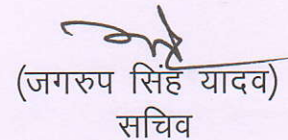 (जगरुप सिंह यादव)
सचिव